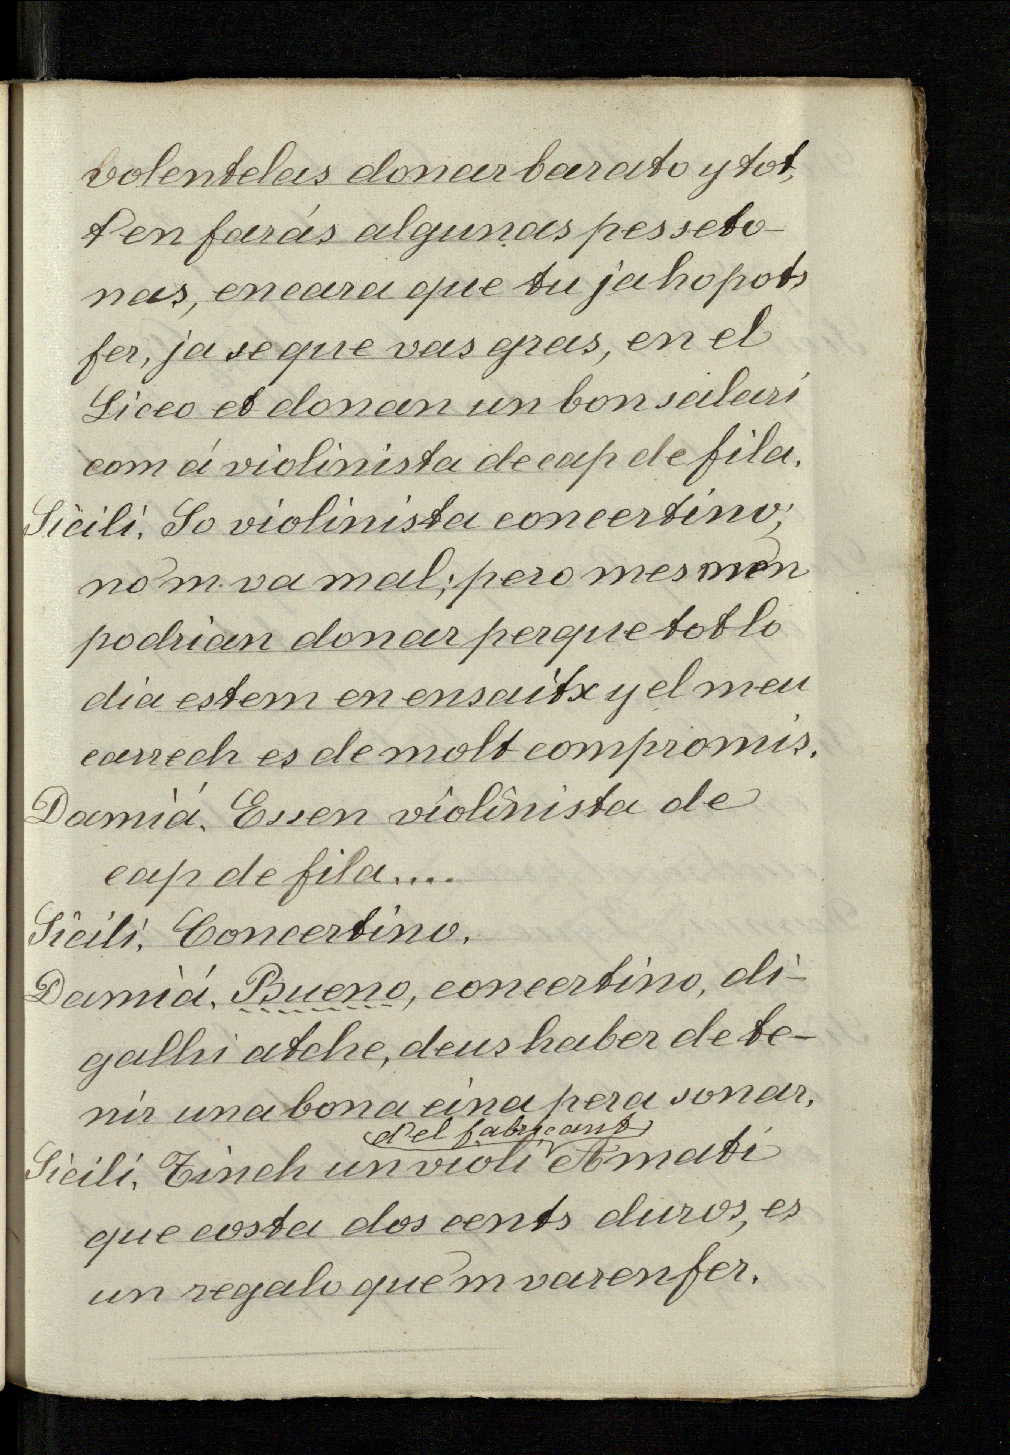 volentelas donar barato y tot,
t'en farás algunas pesseto-
nas, encara que tu ja ho pots
fer, ja se que vas gras, en el
Liceo et donan un bon salari
com á violinista de cap de fila.
Sicili. So violinista concertino;
no'm va mal; pero mes me'n
podrian donar perque tot lo
dia estem en ensaitx y el meu
carrech es de molt compromis.
Damiá. Essen violinista de
cap de fila....
Sicili. Concertino.
Damiá. Bueno, concertino, di-
galhi atche, deus haber de te-
nir una bona eina pera sonar.
del fabricant
Sicili. Tinch un violi Amati
que costa dos cents duros, es
un regalo que'm varen fer.